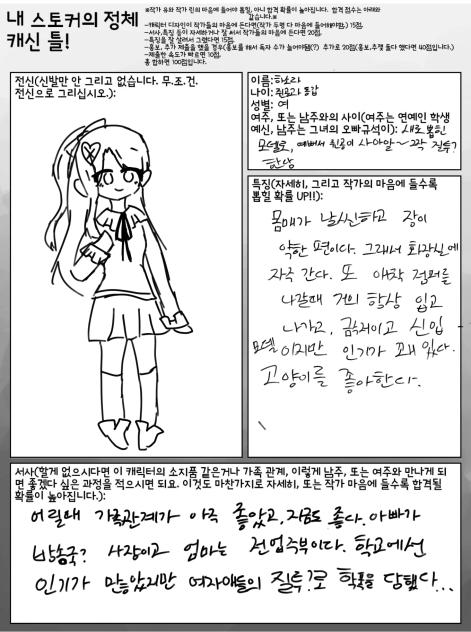 내 스토커의 정체
캐신 틀!
※작가 유화 작가 린의 마음에 들어야 뽑힘, 아니 합격 확률이 높아집니다. 합격 점수는 아래와
같습니다.※
-캐릭터 디자인이 작가들의 마음에 든다면(작가 두명 다 마음에 들어해야함.) 15점.
-서사,특징 등이 자세하거나 잘 써서 작가들의 마음에 든다면 20점.
-특징을 잘 살려서 그렸다면 15점.
-홍보, 추가 제출을 했을 경우(홍보를 해서 독자 수가 높아야됨(?) 추가로 20점(홍보,추젲 둘다 했다면 40점입니다.)
-제출한 속도가 빠르면 10점.
총 합하면 100점입니다.
전신(신발만 안 그리고 없습니다. 무.조.건.
전신으로 그리십시오.):
이름:하소라
나이:진공과 동갑
성별: 여
여주, 또는 남주와의 사이(여주는 연예인 학생
예신, 남주는 그녀의 오빠규석이): 새로 뽑힌
모델로, 예뻐서 원공이 사아알~짝 질투?
한상
특징(자세히, 그리고 작가의 마음에 들수록
뽑힐 확률 UP!!):
몸매가 날씬하고 장이
약한 편이다. 그래서 화장실에
자주 간다. 또 애착 점퍼를
나갈때 거의 항상 입고
나가고, 금수저이고 신입
모델 이지만 인기가 꽤 있다.
고양이를 좋아한다.
서사(할게 없으시다면 이 캐릭터의 소지품 같은거나 가족 관계, 이렇게 남주, 또는 여주와 만나게 되
면 좋겠다 싶은 과정을 적으시면 되요. 이것도 마찬가지로 자세히, 또는 작가 마음에 들수록 합격될
확률이 높아집니다.):
어릴때 가족관계가 아주 좋았고, 지금도 좋다. 아빠가
방송국? 사장이고 엄마는 전업주부이다. 학교에선
인기가 많았지만 여자애들의 질투?로 학폭을 당했다...